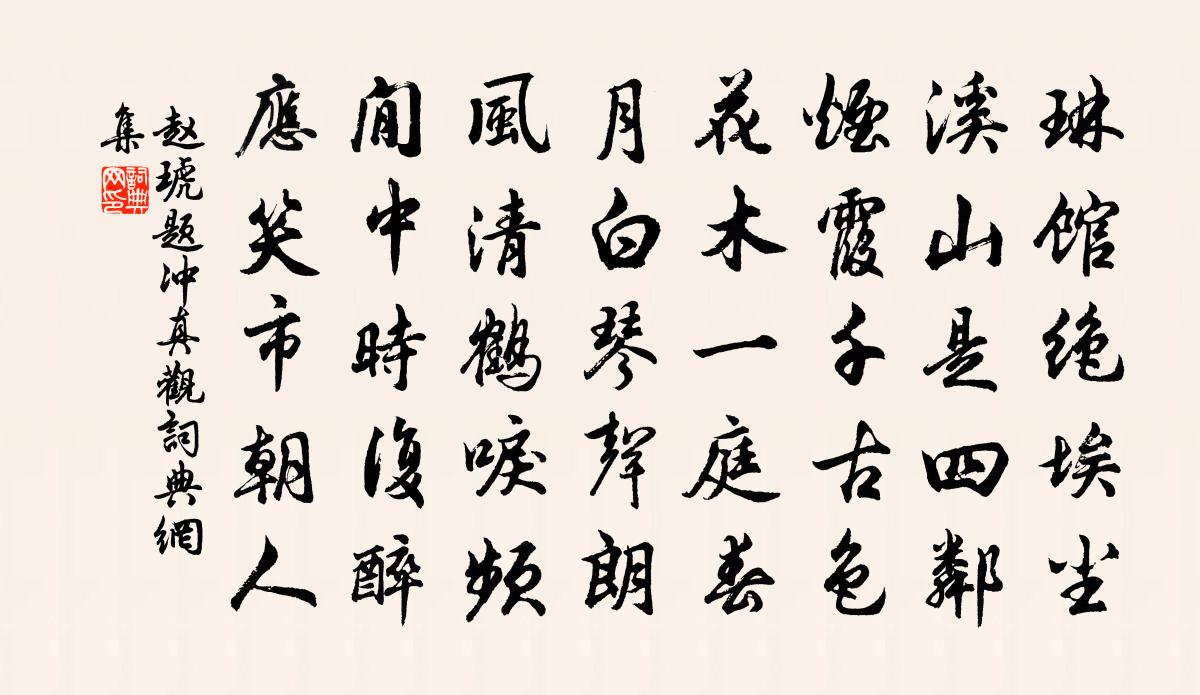 琳馆绝埃尘
溪山是四鄰
煙霞千古色
花木一庭春
月白琴聲朗
風清鶴唳頻
閒中時復醉
應笑市朝人
赵琥题冲真觀詞典網
集
詞典
网印